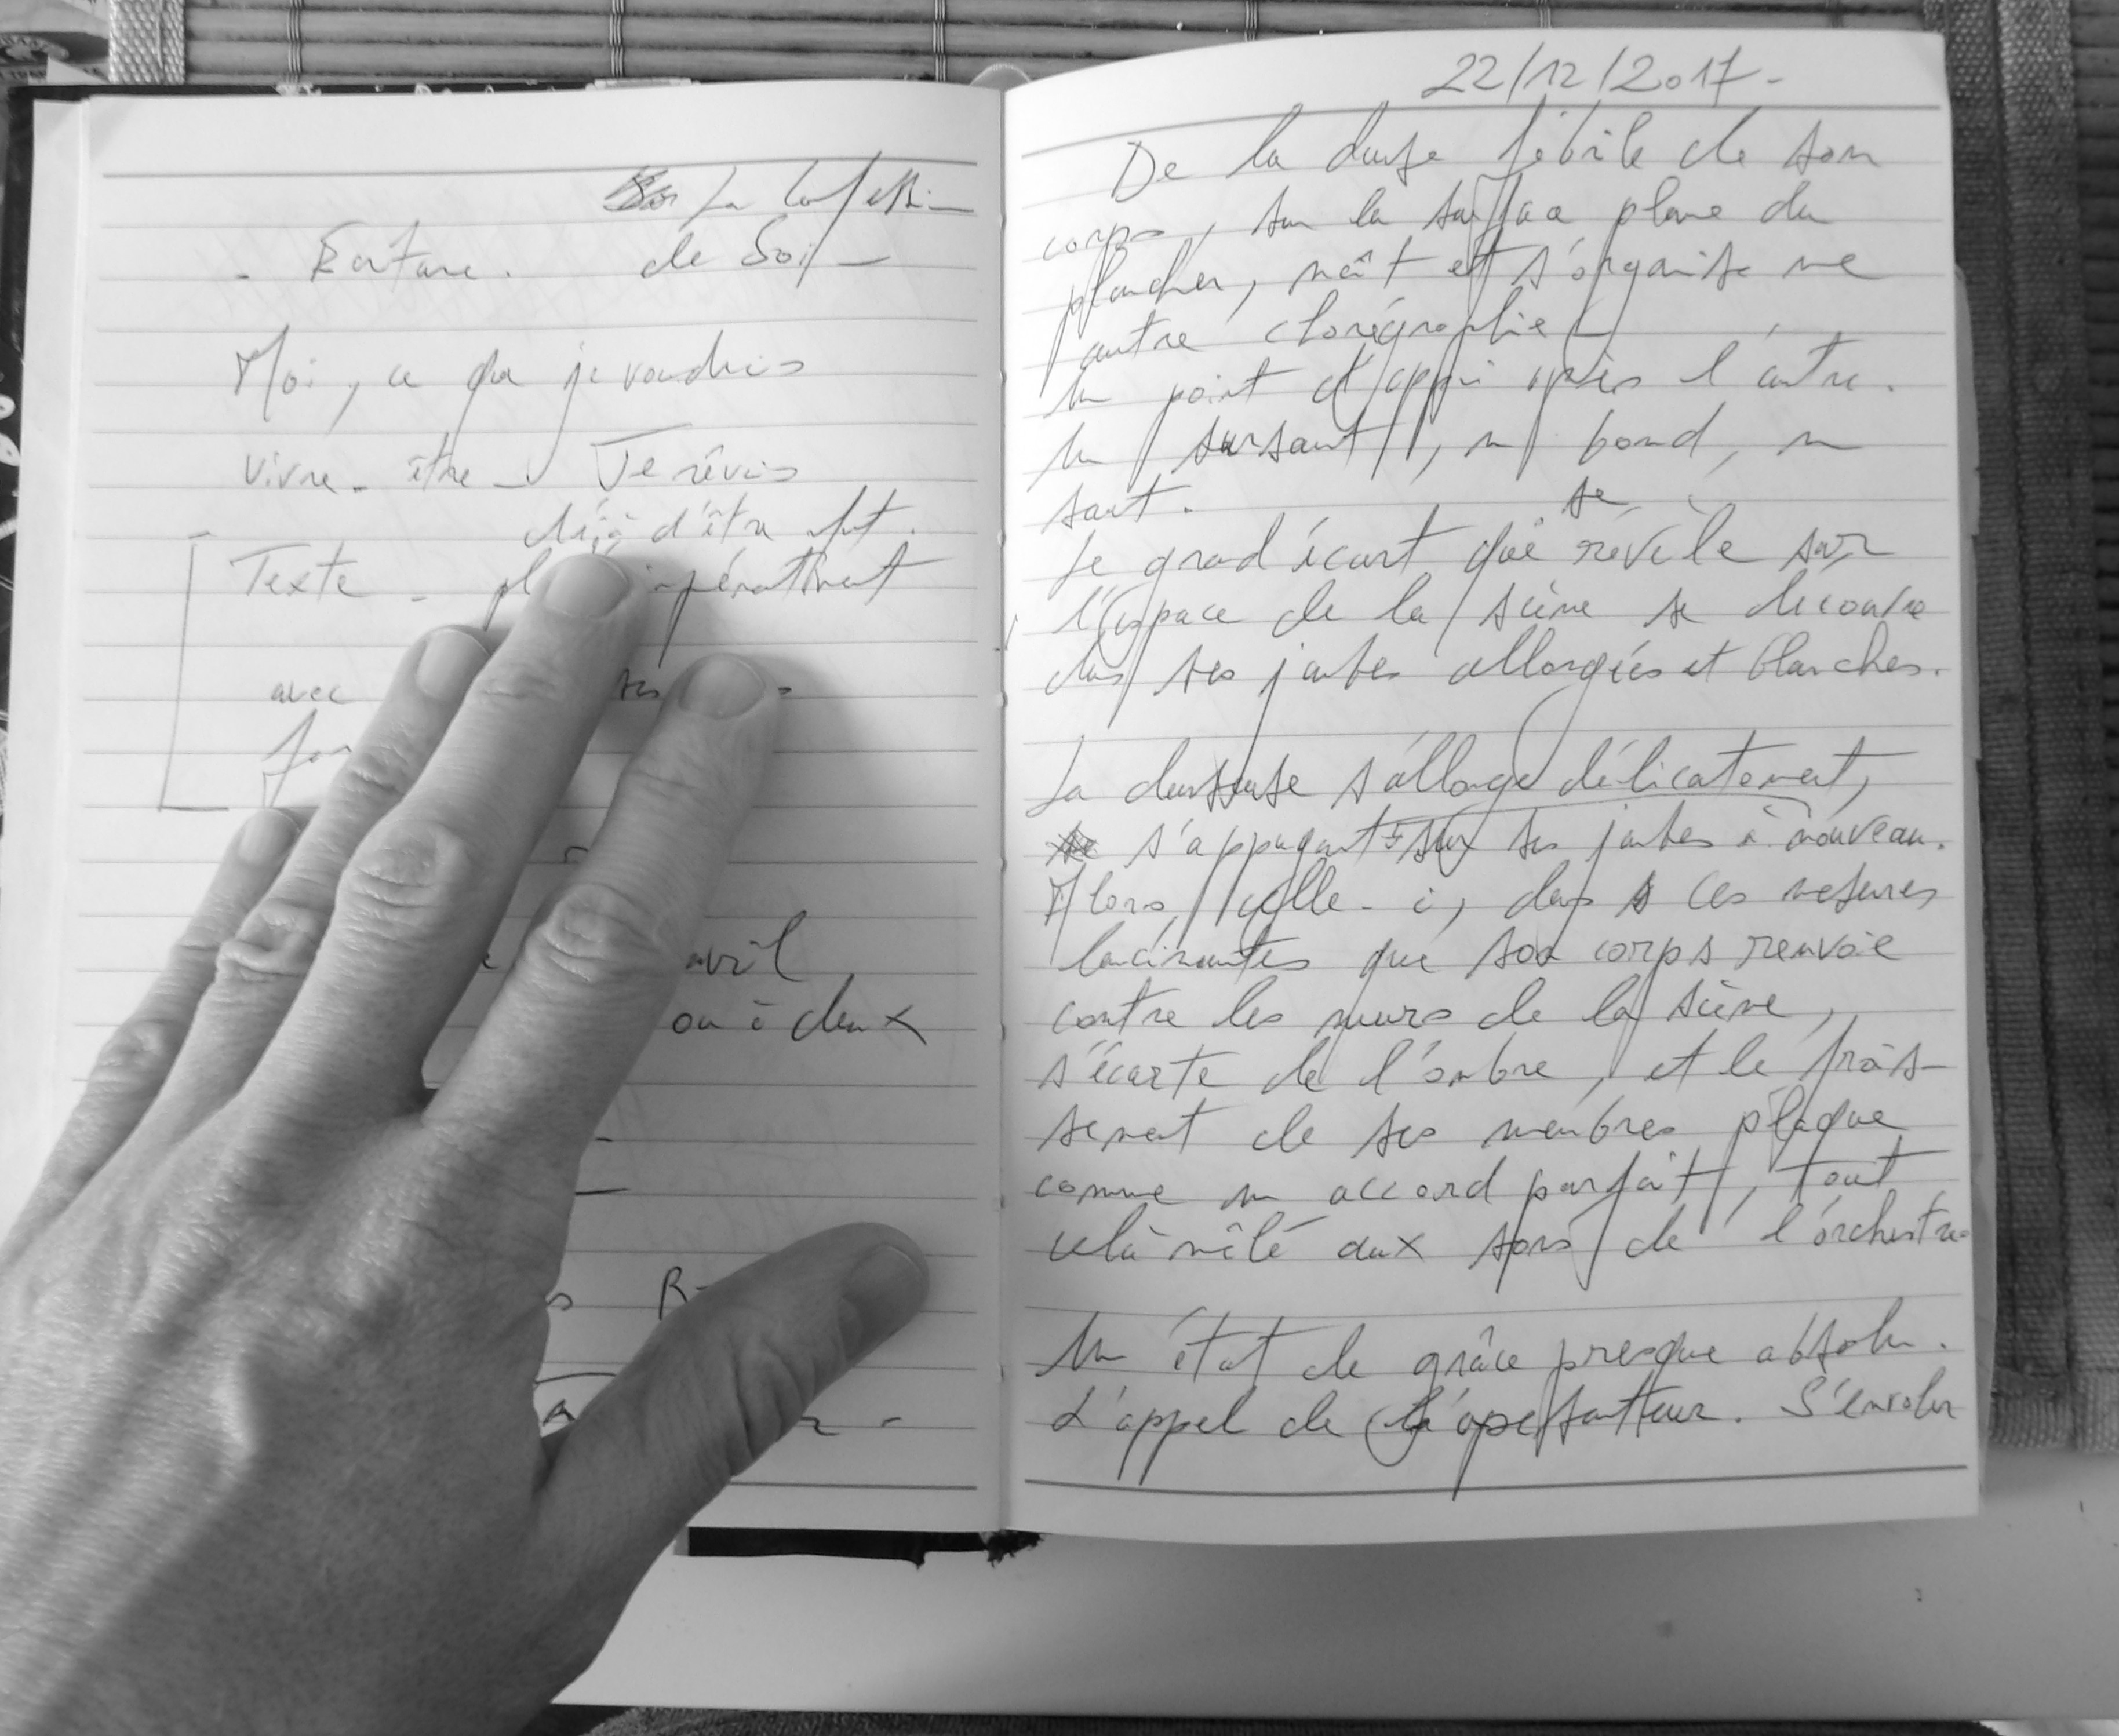 de Soi -
Moi, ce que je voudrais
vivre - être - Je rêvais
déjà d'être
Texte -
avec
avril
ou à deux
22/12/2017 -
De la danse fébrile de son
corps, sur la surface plane du
plancher, naît et s'organise une
autre chorégraphie -
Un point d'appui après l'autre.
Un sursaut, un bond, un
saut.
se
Le grand écart que révèle sur
l'espace de la scène se découvre
dans ses jambes allongées et blanches.
La danseuse s'allonge délicatement,
s'appuyant sur ses jambes à nouveau.
Alors, celle-ci, dans ces mesures
lancinantes que son corps renvoie
contre les murs de la scène,
s'écarte de l'ombre, et le frois-
sement de ses membres plaque
comme un accord parfait, tout
cela mêlé aux sons de l'orchestre
Un état de grâce presque absolu.
L'appel de l'apesanteur. S'envoler